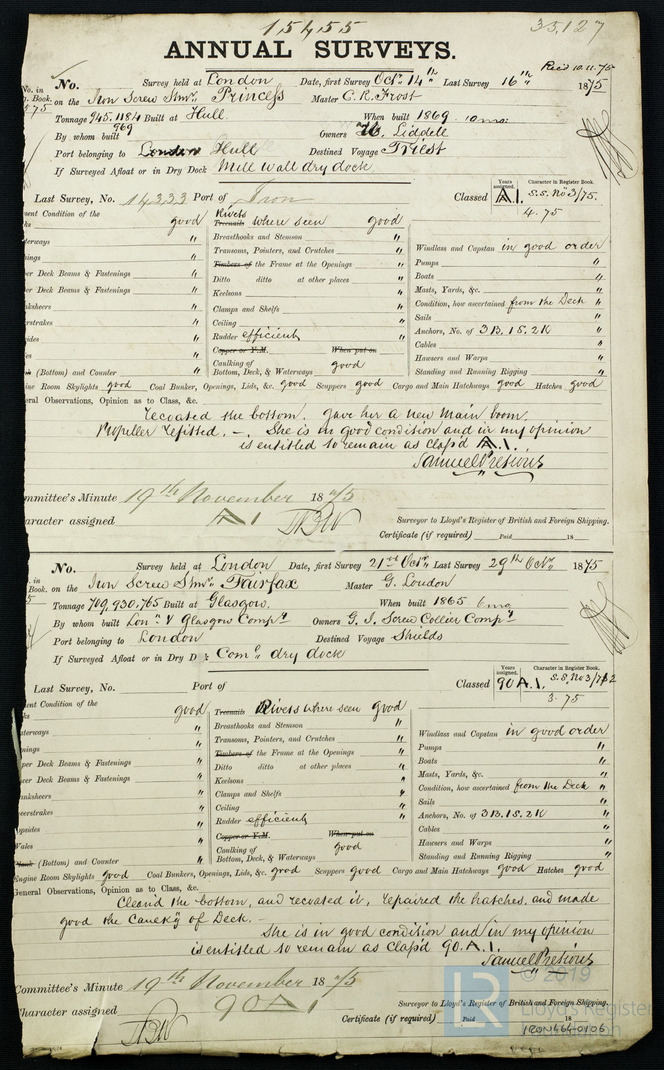 15455
35,127
ANNUAL SURVEYS.
Recd 10.11.75
No. in No. Survey held at London Date, first Survey Octr 14th Last Survey 16th 1875
Book. on the Iron Screw Stmr Princess Master C. R. Frost
Tonnage 945. 1184 Built at Hull. When built 1869 10 mo:
969
By whom built Owners W. Liddell
Port belonging to London Hull Destined Voyage Triest
If Surveyed Afloat or in Dry Dock Millwall dry dock
Last Survey, No. 14333 Port of Iron Classed Years assigned. A.1. Character in Register Book. S.S. No 3/75.
4.75
ent Condition of the good Treenails Rivets where seen good
Breasthooks and Stemson "
terways " Transoms, Pointers, and Crutches " Windlass and Capstan in good order
ings " Timbers of the Frame at the Openings " Pumps "
er Deck Beams & Fastenings " Ditto ditto at other places " Boats "
er Deck Beams & Fastenings " Keelsons " Masts, Yards, &c. "
ksheers " Clamps and Shelfs " Condition, how ascertained from the Deck "
rstrakes " Ceiling " Sails "
ides " Rudder efficient Anchors, No. of 3B. 1S. 2K "
es " Copper or Y.M. When put on Cables "
(Bottom) and Counter " Caulking of Bottom, Deck, & Waterways good Hawsers and Warps "
Standing and Running Rigging "
ine Room Skylights good Coal Bunker, Openings, Lids, &c. good Scuppers good Cargo and Main Hatchways good Hatches good
eral Observations, Opinion as to Class, &c.
recoated the bottom. Gave her a new main boom.
Propeller refitted. — She is in good condition and in my opinion
is entitled to remain as Class'd A.1.
Samuel Pretious
mmittee's Minute 19th November 1875
aracter assigned A1
Surveyor to Lloyd's Register of British and Foreign Shipping.
Certificate (if required) Paid 18
No. Survey held at London Date, first Survey 21st Octr. Last Survey 29th Octr. 1875
Book. on the Iron Screw Stmr. Fairfax Master G. Loudon
Tonnage 709, 930, 765 Built at Glasgow. When built 1865 6 mo
By whom built Lon. & Glasgow Compy Owners G. I. Screw Collier Compy
Port belonging to London Destined Voyage Shields
If Surveyed Afloat or in Dry D k Coml. dry dock
Last Survey, No. Port of Classed Years assigned. 90 A.1. Character in Register Book. S.S. No 3/72
3.75
ent Condition of the good Treenails Rivets where seen good
Breasthooks and Stemson "
terways " Transoms, Pointers, and Crutches " Windlass and Capstan in good order
nings " Timbers of the Frame at the Openings " Pumps "
per Deck Beams & Fastenings " Ditto ditto at other places " Boats "
wer Deck Beams & Fastenings " Keelsons " Masts, Yards, &c. "
anksheers " Clamps and Shelfs " Condition, how ascertained from the Deck "
eerstrakes " Ceiling " Sails "
opsides " Rudder efficient Anchors, No. of 3B. 1S. 2K "
Wales " Copper or Y.M. When put on Cables "
Plank (Bottom) and Counter " Caulking of Bottom, Deck, & Waterways good Hawsers and Warps "
Standing and Running Rigging "
Engine Room Skylights good Coal Bunkers, Openings, Lids, &c. good Scuppers good Cargo and Main Hatchways good Hatches good
General Observations, Opinion as to Class, &c.
Clean'd the bottom, and recoated it, repaired the hatches and made
good the Caulkg of Deck. —
She is in good condition and in my opinion
is entitled to remain as Class'd 90. A.1.
Samuel Pretious
Committee's Minute 19th November 1875
Character assigned 90 A 1
Surveyor to Lloyd's Register of British and Foreign Shipping.
Certificate (if required) Paid 18
IRON464-0106
LR © 2019
Lloyd's Register
Foundation